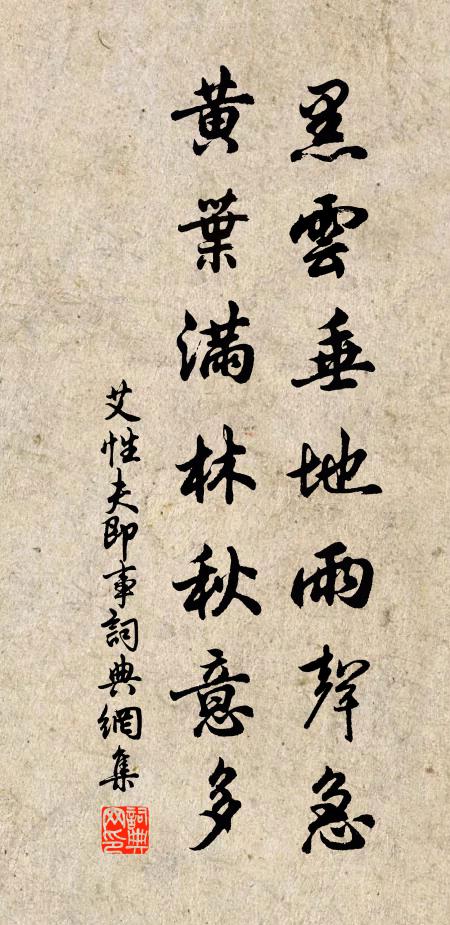 黑雲垂地雨聲急
黃葉滿林秋意多
艾性夫即事詞典網集
詞典網印